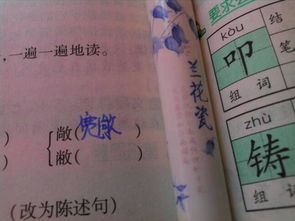 ，一遍一遍地读。
) {敞(宽敞)
) {敝( )
(改为陈述句)
兰花瓷
要求
kòu 结
叩 笔
组 词
zhù
铸 结
笔
组 词